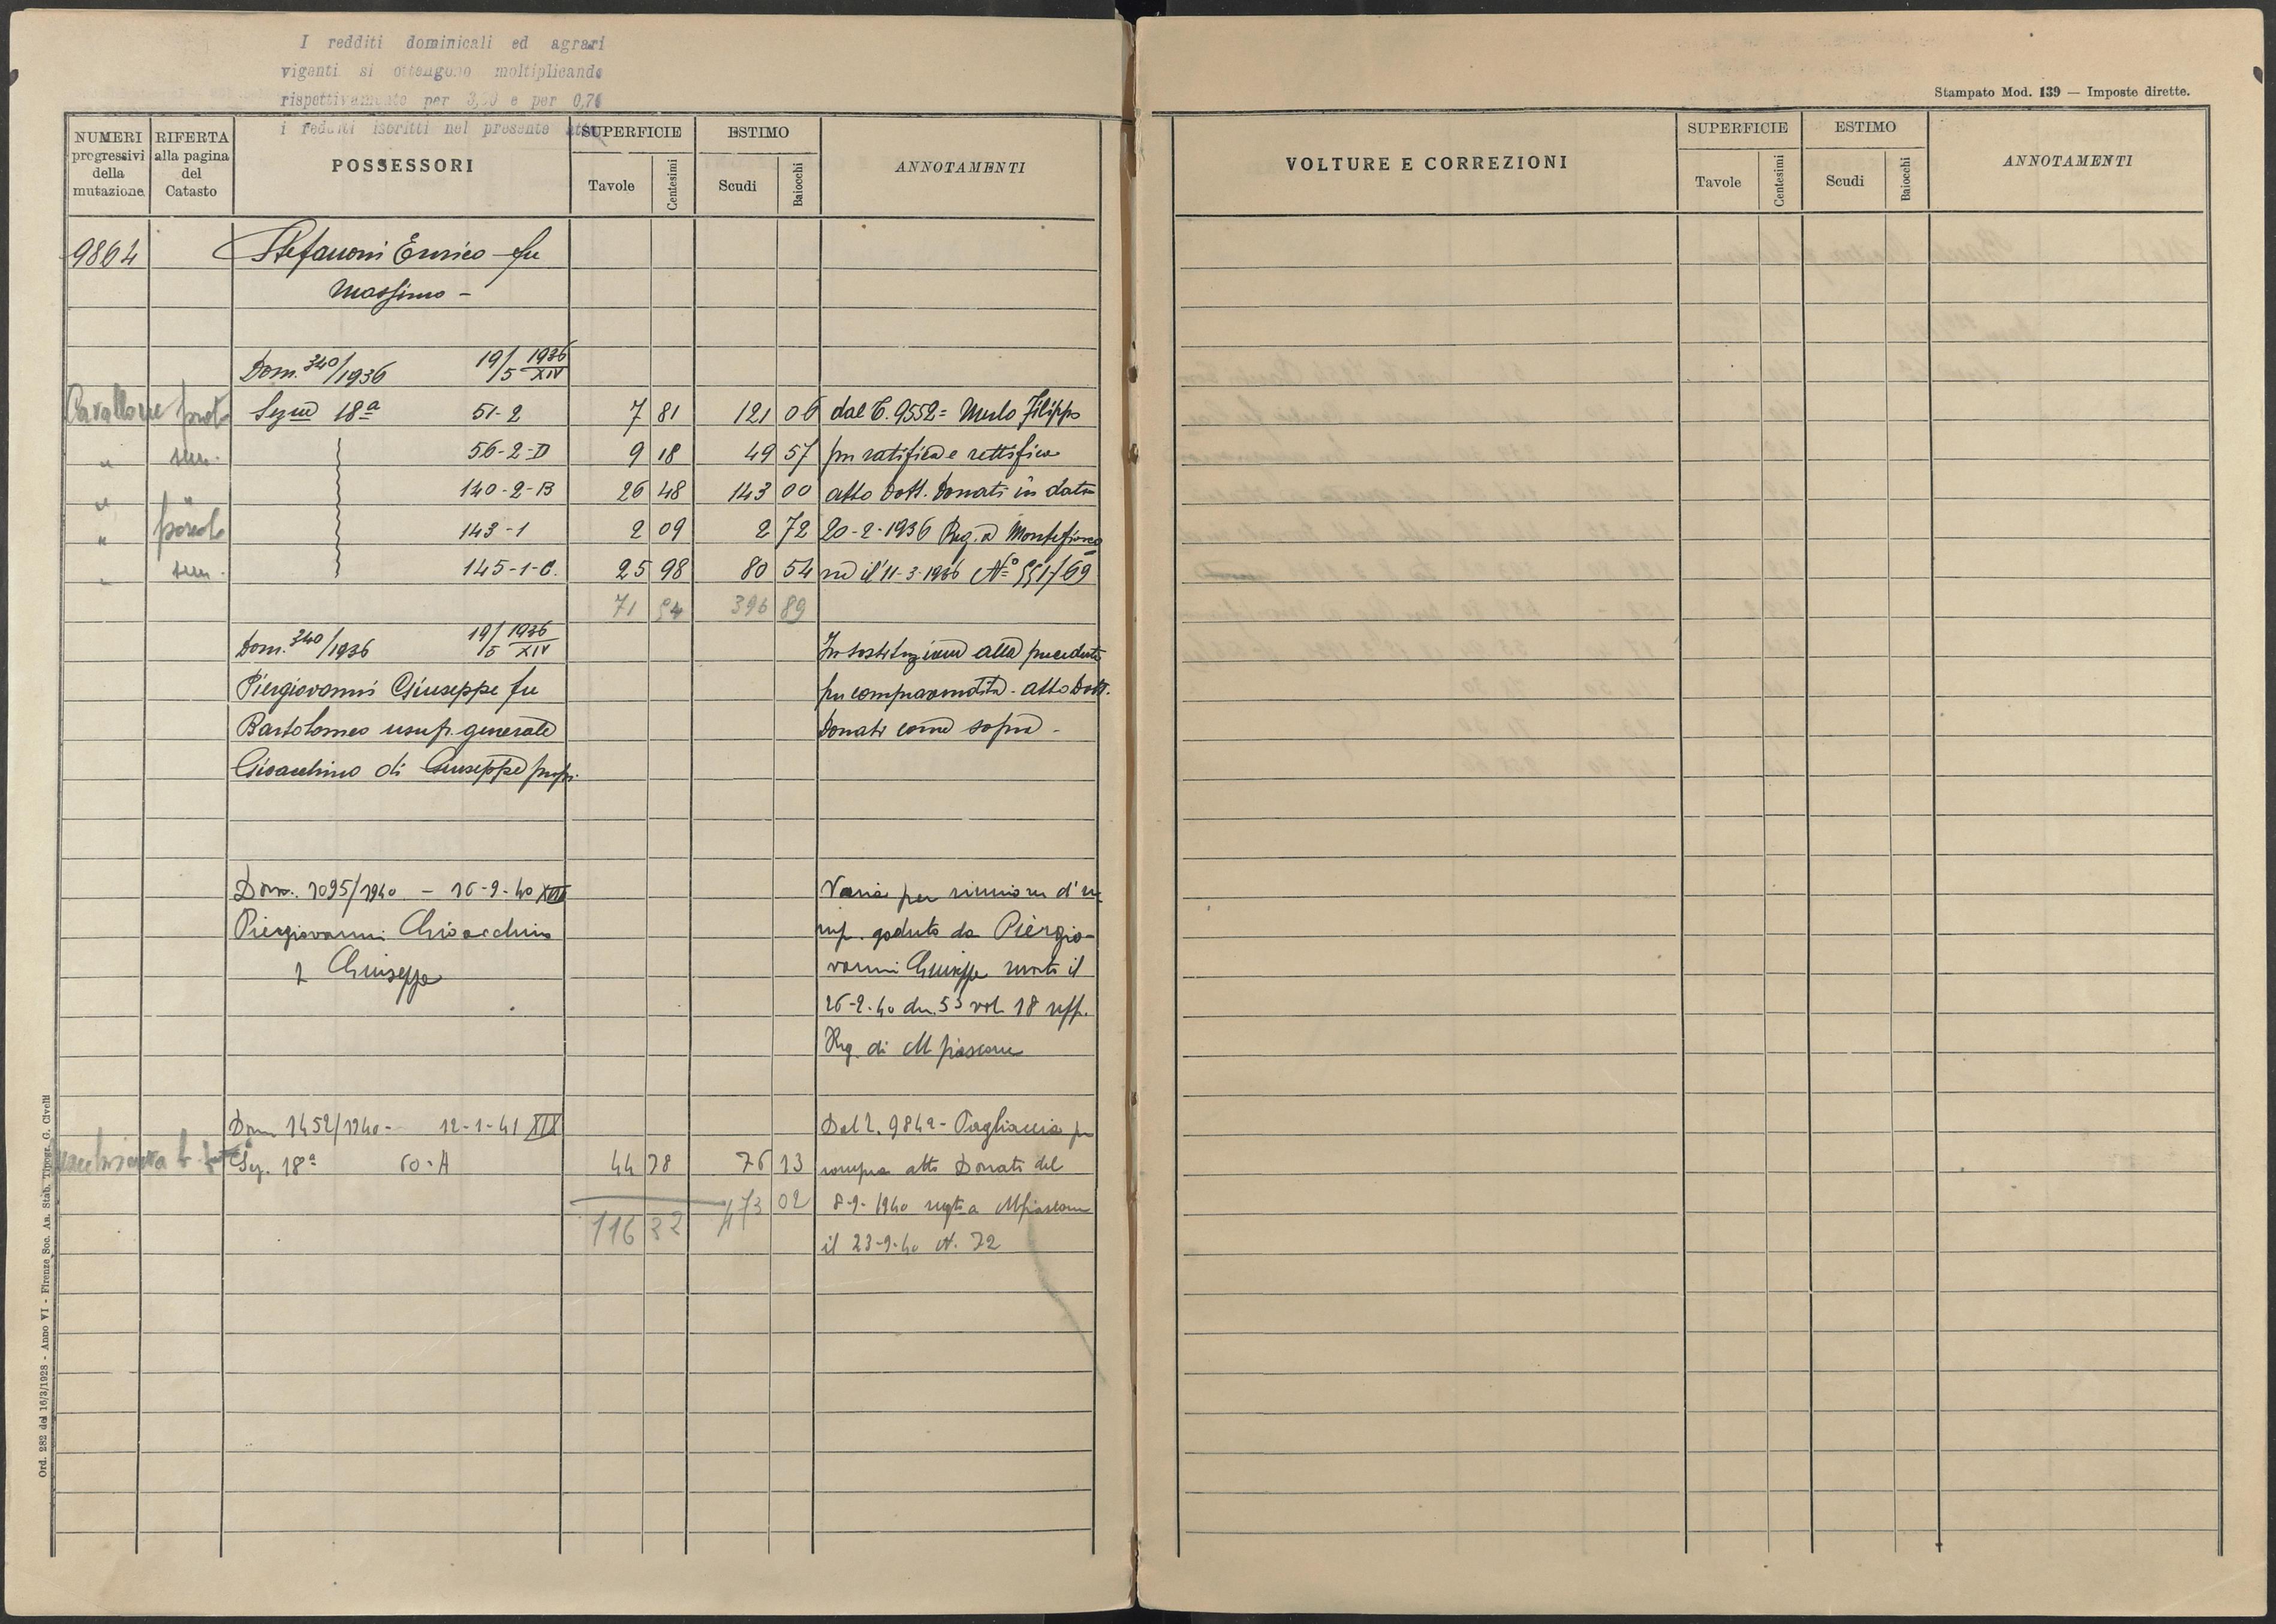 I redditi dominicali ed agrari
vigenti si ottengono moltiplicando
rispettivamente per 3,50 e per 0,76
i redditi iscritti nel presente atto
Stampato Mod. 139 — Imposte dirette.
NUMERI progressivi della mutazione RIFERTA alla pagina del Catasto POSSESSORI SUPERFICIE Tavole Centesimi ESTIMO Scudi Baiocchi ANNOTAMENTI
VOLTURE E CORREZIONI SUPERFICIE Tavole Centesimi ESTIMO Scudi Baiocchi ANNOTAMENTI
9864 Stefanoni Enrico fu
Massimo -
Dom. 340/1936 19/5 1936 XIV
Cavallone prato Segue 18ª 51-2 7 81 121 06 dal C. 9552= Merlo Filippo
" sem. 56-2-D 9 18 49 57 per ratifica e rettifica
" " 140-2-B 26 48 143 00 atto Dott. Donati in data
" pascolo 143-1 2 09 2 72 20-2-1936 Reg. a Montefiasco
" sem. 145-1-C. 25 98 80 54 ne il 11-3-1936 N° 551/69
71 54 396 89
Dom. 340/1936 19/5 1936 XIV In sostituzione alla precedente
Piergiovanni Giuseppe fu per compravendita - atto Dott.
Bartolomeo usufr. generale Donati come sopra -
Gioacchino di Giuseppe propr.
Dom. 1095/1940 - 16-9-40 XVIII Varia per riunione d'u
Piergiovanni Gioacchino suf. goduto da Piergio-
fu Giuseppe vanni Giuseppe morto il
26-2-40 den. 53 vol. 18 uff.
Reg. di M fiascone
Dom 1452/1940 - 12-1-41 XIX Dal C. 9842 - Pagliaccia per
Seg. 18ª 60-A 44 78 76 13 compra atto Donati del
473 02 8-9-1940 regto a Mfiascone
116 32 il 23-9-40 N. 72
Ord. 282 del 16/3/1928 - Anno VI - Firenze Soc. An. Stab. Tipogr. G. Civelli